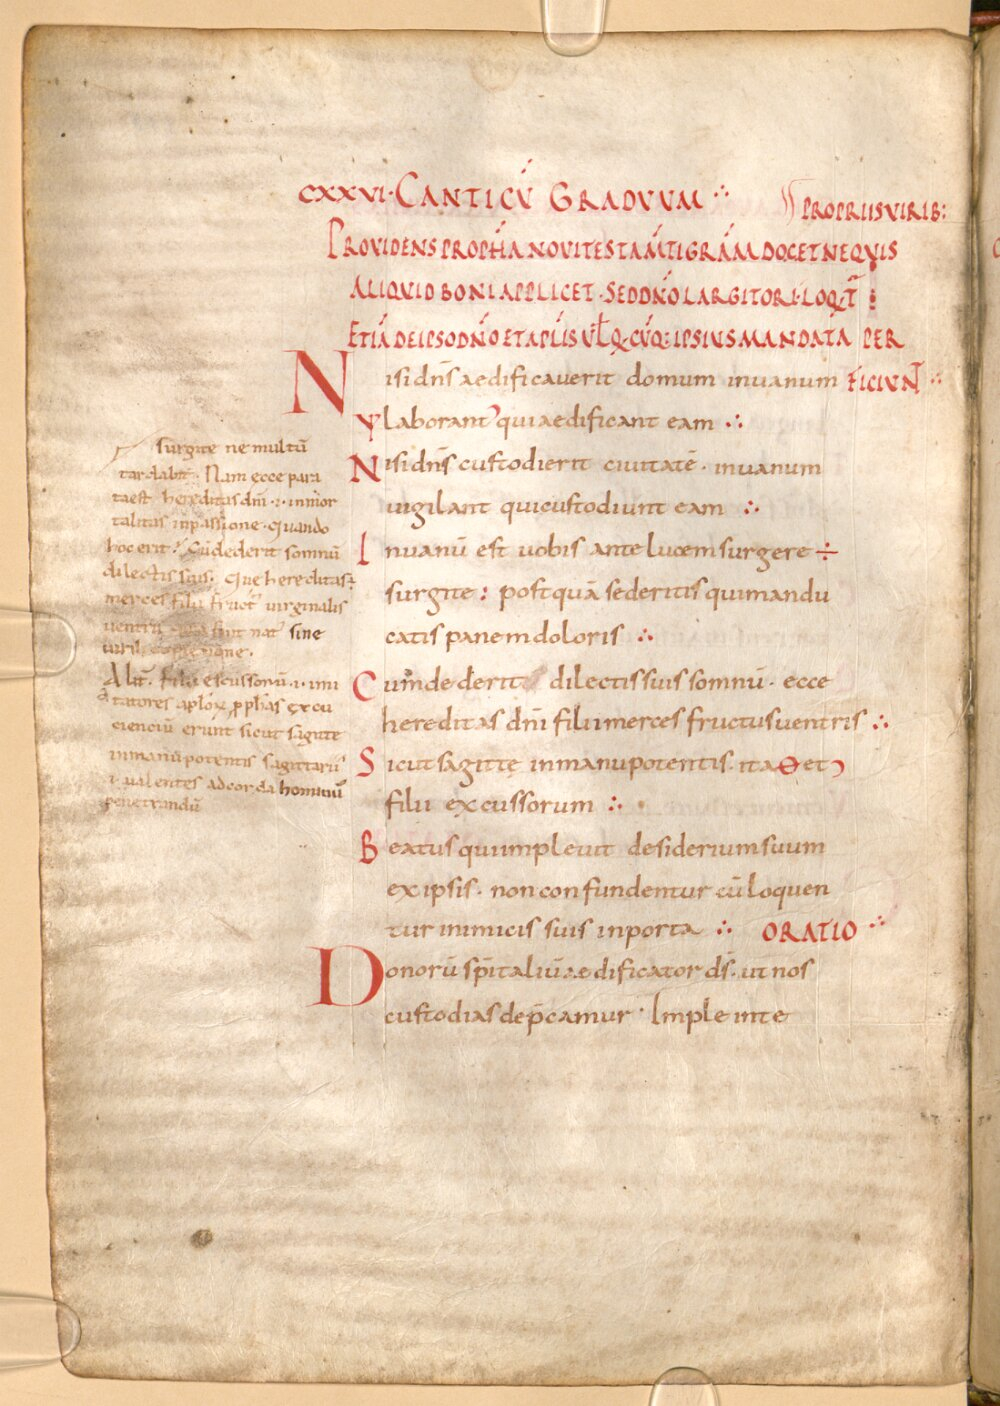 CXXVI· CANTICŪ GRADVVM ∴
PROPRIIS VIRIB:
PROVIDENS PROPHA NOVI TESTAMTI GRAM DOCET NE QVIS
ALIQVID BONI APPLICET · SED DNO LARGITORI· LOQT
ETIA DE IPSO DNO ET APLIS VL Q CVQ: IPSIVS MANDATA PER
Nisi dn̄s aedificauerit domum inuanum FICIUNT ∴
laborant qui aedificant eam ∴
Nisi dn̄s custodierit ciuitatē · inuanum
uigilant qui custodiunt eam ∴
Inuanū est uobis ante lucem surgere ÷
surgite : postquā sederitis qui mandu
catis panem doloris ∴
Cum dederit dilectis suis somnū · ecce
hereditas dn̄i filii merces fructus uentris ∴
Sicut sagitte in manu potentis · ita et
filii excussorum ∴
Beatus qui impleuit desiderium suum
ex ipsis · non confundentur cū loquen
tur inimicis suis in porta ∴ ORATIO ∴
Donorū sp̄italiū aedificator ds̄ · ut nos
custodias dep̄camur · Imple inte
surgite ne multū
tardabit · Nam ecce para
ta est hereditas dn̄i · i · inmor
talitas in passione · Quando
hoc erit? Cū dederit somnū
dilectis suis · Que hereditas?
merces filii fruct uirginalis
uentris sine
Alit · Filii excussorū · i · imi
tatores aplox pphas excu
cienciū erunt sicut sagitte
in manu potentis sagittarii
i ualentes ad corda hominū
penetrandū